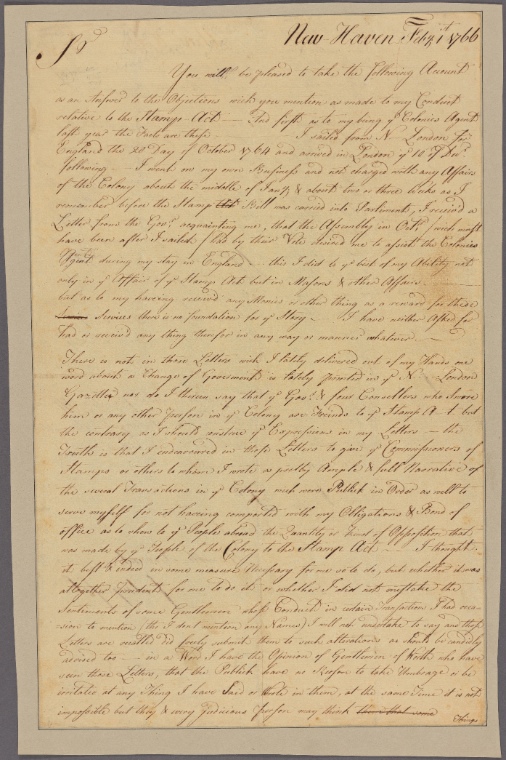 New-Haven Feby 1st 1766
Sr
You will be pleased to take the following Account
as an Answer to the Objections wch you mention as made to my Conduct
relative to the Stamp-Act — And first as to my being ye Colonies Agent
last year the Facts are these — I sailed from N. London for
England the Day of October 1764 and arrived in London ye of Decr
following — I went on my own Business and not charged with any Affairs
of the Colony about the middle of Jany & about two or three weeks as I
remember before the Stamp Bill was carried into Parliament, I received a
Letter from the Govr acquainting me, that the Assembly in Octr (wch must
have been after I sailed) had by their Vote desired me to assist the Colonies
Agent during my stay in England — this I did to ye best of my Ability not
only in ye Affair of ye Stamp Act but in Masons & other Affairs
but as to my having received any Monies or other thing as a reward for these
Services there is no foundation for ye Story — I have neither Asked for
had or received any thing therefor in any way or manner whatever —
There is not in those Letters wch I lately delivered out of my Hands one
word about a Change of Government as lately printed in ye N. London
Gazette nor do I therein say that ye Govr & four Councellors who Swore
him or any other person in ye Colony are Friends to ye Stamp A-t but
the contrary as I should construe ye Expressions in my Letters — the
Truth is that I endeavoured in those Letters to give ye Commissioners of
Stamps or others to whom I wrote a pretty Ample & full Narrative of
the several Transactions in ye Colony wch were Publick in Order as well to
excuse myself for not having complied with my Obligations & Bond of
office as to shew to ye People abroad the Quantity or kind of Opposition that
was made by ye People of the Colony to the Stamp Act — I thought
it best & indeed in some measure Necessary for me so to do, but whether it was
altogether prudent for me to do it or whether I did not mistake the
Sentiments of some Gentlemen whose Conduct in certain Transactions I had occa-
sion to mention (tho I dont mention any Names) I will not undertake to say and those
Letters are recalled to submit them to such alterations as should be
advised too — in a Word I have the Opinion of Gentlemen of Worth who have
seen those Letters, that the Publick have no Reason to take Umbrage or be
irritated at any Thing I have Said or Wrote in them, at the same time it is not
impossible but they & every Judicious Person may think
things